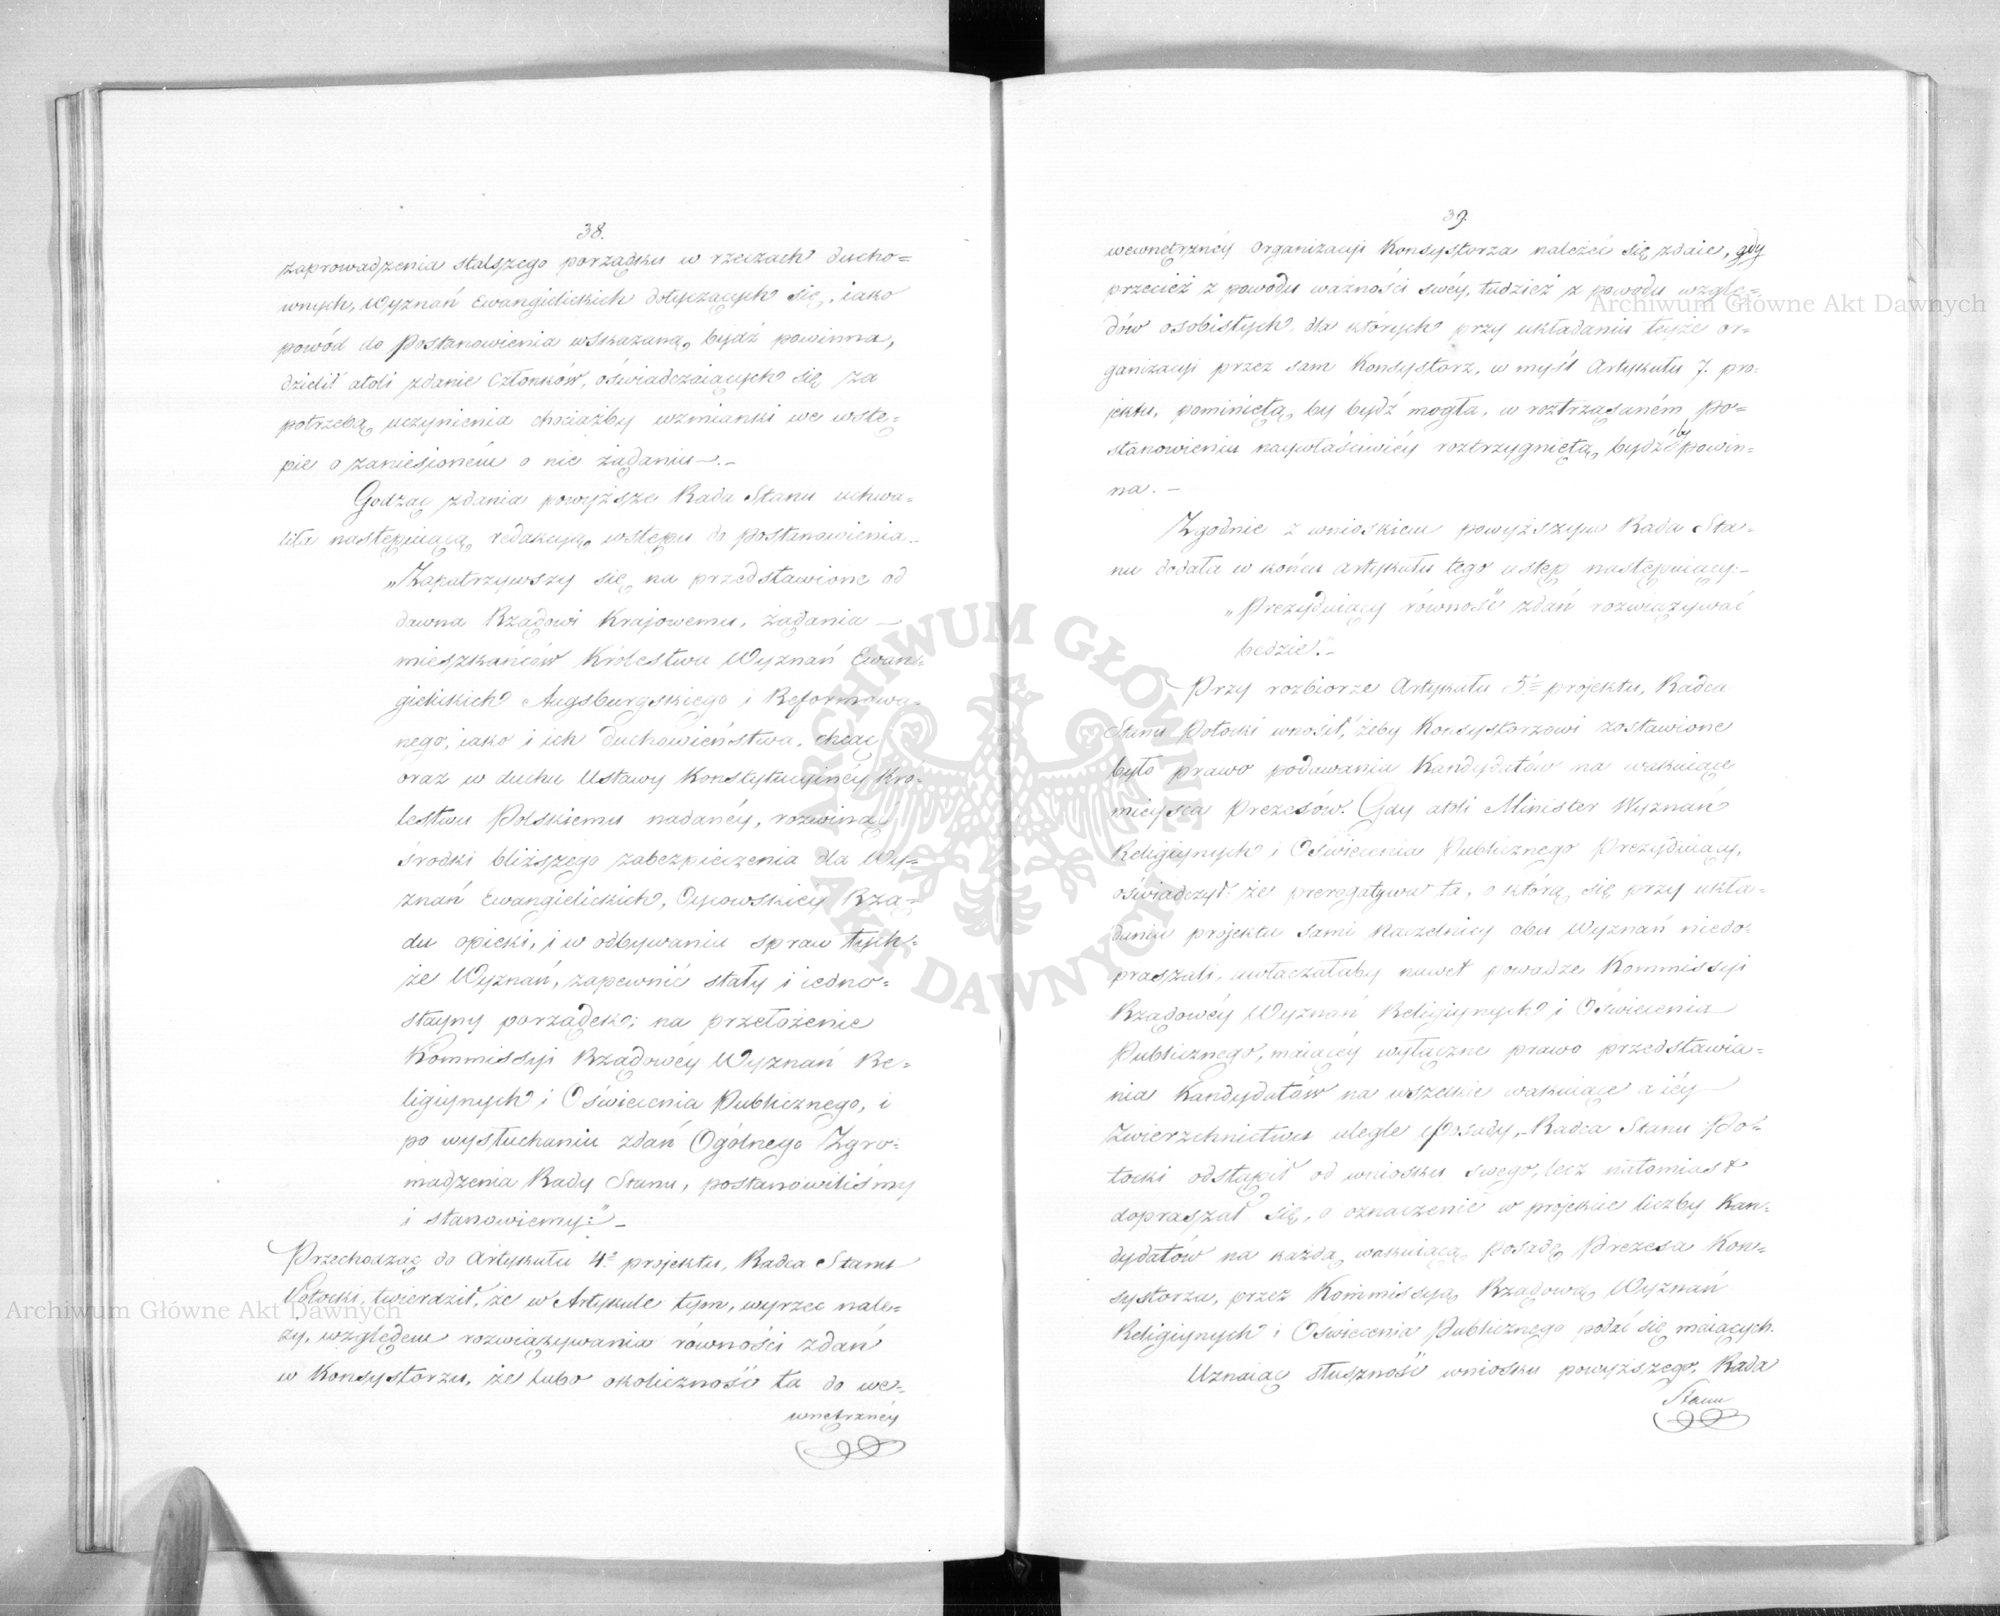 38.
zaprowadzenia stalszego porządku w rzeczach ducho=
wnych, Wyznań Ewangielickich dotyczących się, iako
powód do Postanowienia wskazaną bydź powinna,
dzielił atoli zdanie Członków, oświadczaiących się za
potrzebą uczynienia chociażby wzmianki we wstę=
pie o zaniesioném o nie żądaniu.—
Godząc zdania powyższe Rada Stanu uchwa=
liła następuiącą redakcyą wstępu do Postanowienia.
„Zapatrzywszy się na przedstawione od
dawna Rządowi Krajowemu, żądania
mieszkańców Królestwa Wyznań Ewan=
gielickich Augsburgskiego i Reformowa=
nego, iako i ich duchowieństwa, chcąc
oraz w duchu Ustawy Konstytucyinéy Kró=
lestwu Polskiemu nadanéy, rozwinąć
środki bliższego zabezpieczenia dla Wy=
znań Ewangielickich, Oycowskiey Rzą=
du opieki, i w odbywaniu spraw tych=
że Wyznań, zapewnić stały i iedno=
stayny porządek; na przełożenie
Kommissyi Rządowéy Wyznań Re=
ligiynych i Oświecenia Publicznego, i
po wysłuchaniu zdań Ogólnego Zgro=
madzenia Rady Stanu, postanowiliśmy
i stanowiemy:” —
Przechodząc do Artykułu 4º projektu, Radca Stanu
Potocki, twierdził, że w Artykule tym, wyrzec nale=
ży, względem rozwiązywania równości zdań
w Konsystorzu, że lubo okoliczność ta do we=
wnętrznéy
39.
wewnętrznéy Organizacyi Konsystorza należeć się zdaie, gdy
przecież z powodu ważności swéy, tudzież z powodu wzglę=
dów osobistych, dla których przy układaniu teyże or=
ganizacyi przez sam Konsystorz, w myśl Artykułu 7. pro=
jektu, pominiętą by bydź mogła, w roztrząsaném Po=
stanowieniu naywłaściwiéy roztrzygniętą bydź by powin=
na. —
Zgodnie z wnioskiem powyższym Rada Sta=
nu dodała w końcu artykułu tego ustęp następuiący:—
„Prezyduiący równość zdań rozwiązywać
będzie”.—
Przy rozbiorze Artykułu 5º projektu, Radca
Stanu Potocki wnosił, żeby Konsystorzowi zostawione
było prawo podawania Kandydatów na wakuiące
mieysca Prezesów. Gdy atoli Minister Wyznań
Religiynych i Oświecenia Publicznego Prezyduiący,
oświadczył: że prerogatywa ta, o którą się przy ukła=
daniu projektu sami Naczelnicy obu Wyznań niedo=
praszali, uwłaczałaby nawet powadze Kommissyi
Rządowéy Wyznań Religiynych i Oświecenia
Publicznego, maiącéy wyłączne prawo przedstawia=
nia Kandydatów na wszelkie wakuiące a iéy
Zwierzchnictwu uległe Posady, Radca Stanu Po=
tocki odstąpił od wniosku swego, lecz natomiast
dopraszał się, o oznaczenie w projekcie liczby Kan=
dydatów na każdą wakuiącą posadę Prezesa Kon=
systorza, przez Kommissyą Rządową Wyznań
Religiynych i Oświecenia Publicznego podać się maiących.
Uznaiąc słuszność wniosku powyższego, Rada
Stanu
Archiwum Główne Akt Dawnych
Archiwum Główne Akt Dawnych
ARCHIWUM GŁÓWNE AKT DAWNYCH